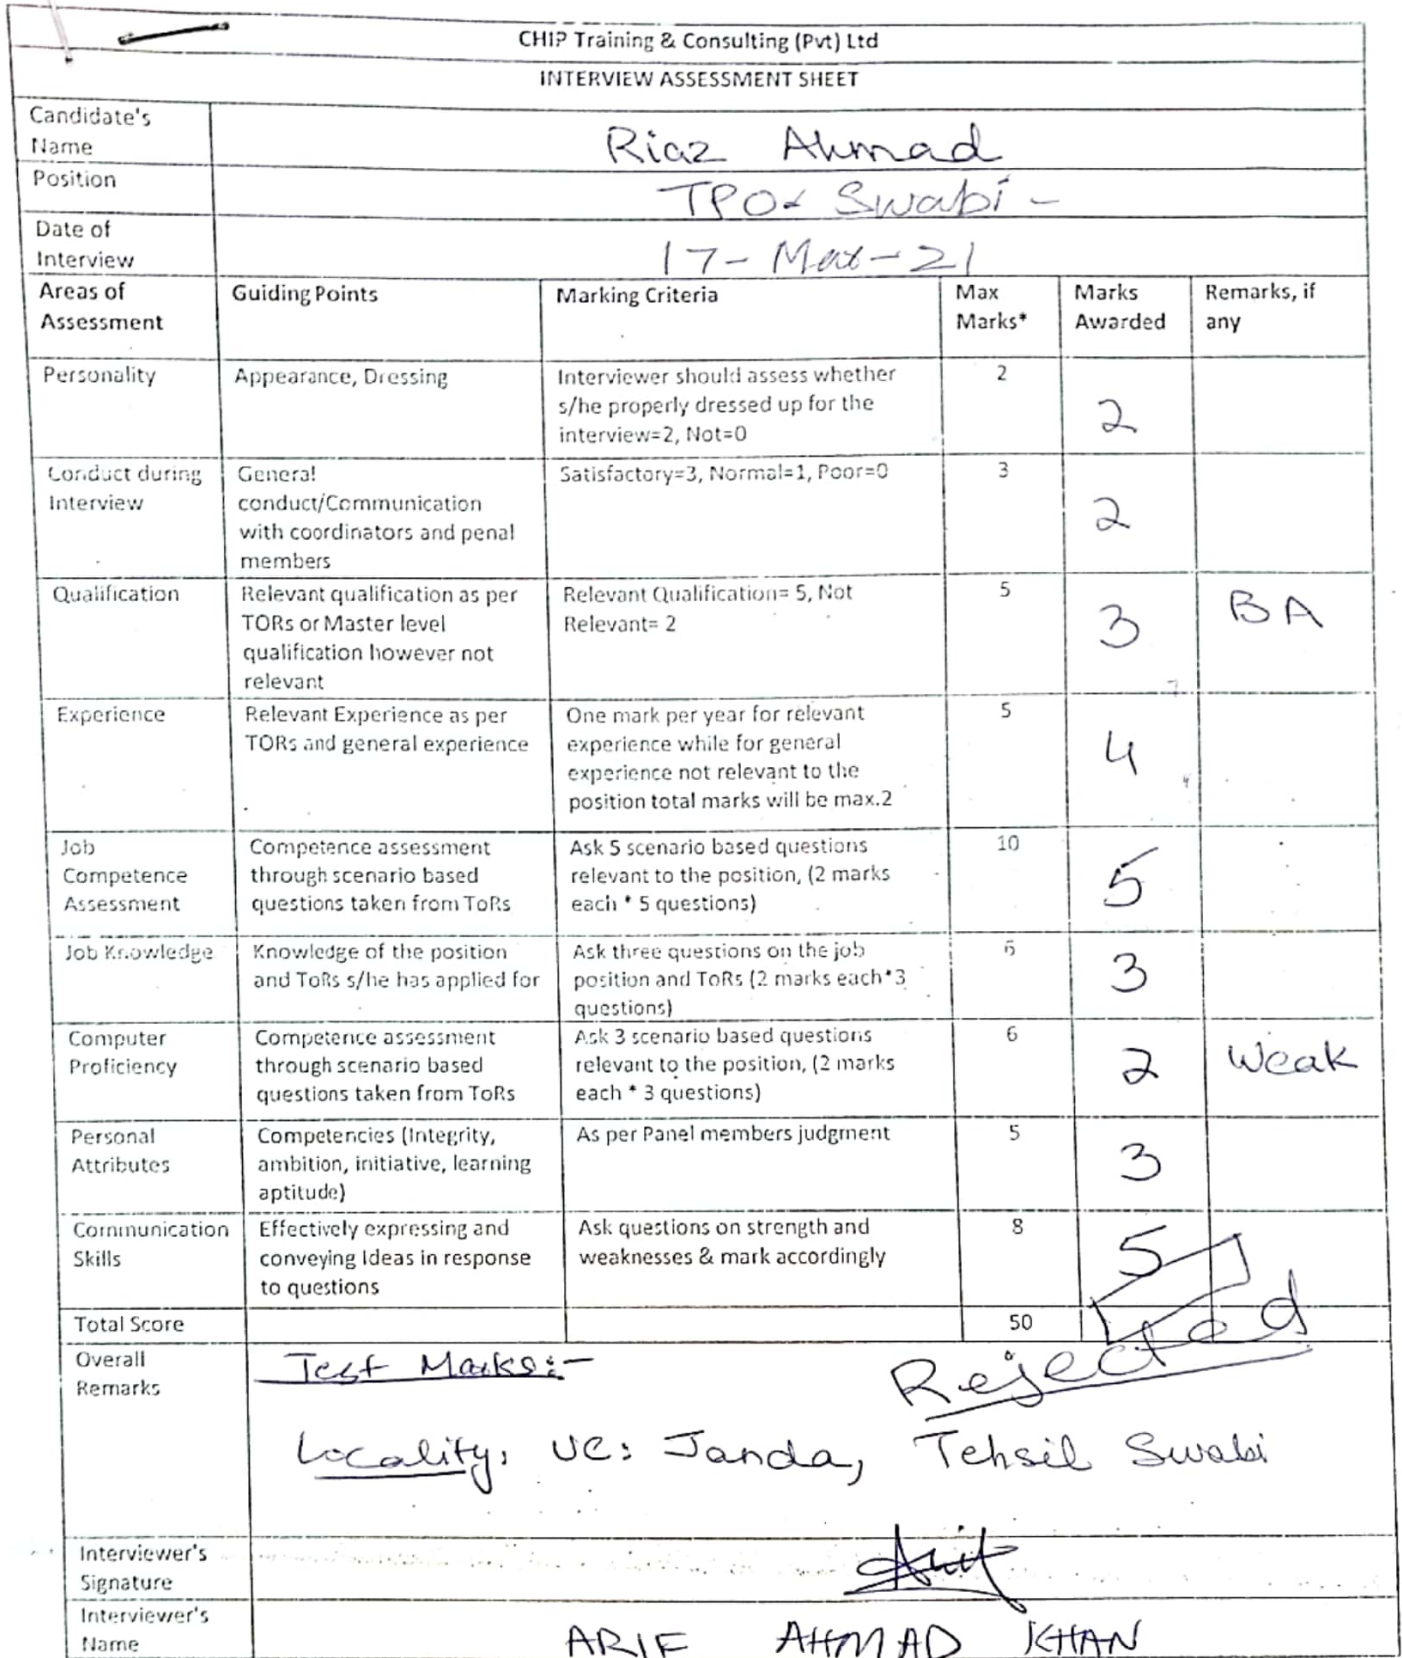 CHIP Training & Consulting (Pvt) Ltd
INTERVIEW ASSESSMENT SHEET
Candidate's
Name
Riaz Ahmad
Position
TPO Swabi -
Date of
Interview
17-Mar-21
Areas of
Assessment
Guiding Points
Marking Criteria
Max
Marks*
Marks
Awarded
Remarks, if
any
Personality
Appearance, Dressing
Interviewer should assess whether
s/he properly dressed up for the
interview=2, Not=0
2
2
Conduct during
Interview
General
conduct/Communication
with coordinators and penal
members
Satisfactory=3, Normal=1, Poor=0
3
2
Qualification
Relevant qualification as per
TORs or Master level
qualification however not
relevant
Relevant Qualification= 5, Not
Relevant= 2
5
3
BA
Experience
Relevant Experience as per
TORs and general experience
One mark per year for relevant
experience while for general
experience not relevant to the
position total marks will be max.2
5
4
Job
Competence
Assessment
Competence assessment
through scenario based
questions taken from ToRs
Ask 5 scenario based questions
relevant to the position, (2 marks
each * 5 questions)
10
5
Job Knowledge
Knowledge of the position
and ToRs s/he has applied for
Ask three questions on the job
position and ToRs (2 marks each*3
questions)
6
3
Computer
Proficiency
Competence assessment
through scenario based
questions taken from ToRs
Ask 3 scenario based questions
relevant to the position, (2 marks
each * 3 questions)
6
2
Weak
Personal
Attributes
Competencies (Integrity,
ambition, initiative, learning
aptitude)
As per Panel members judgment
5
3
Communication
Skills
Effectively expressing and
conveying Ideas in response
to questions
Ask questions on strength and
weaknesses & mark accordingly
8
5
Total Score
50
Overall
Remarks
Test Marks:-
Rejected
Locality, UC: Janda, Tehsil Swabi
Interviewer's
Signature
Interviewer's
Name
ARIF AHMAD KHAN